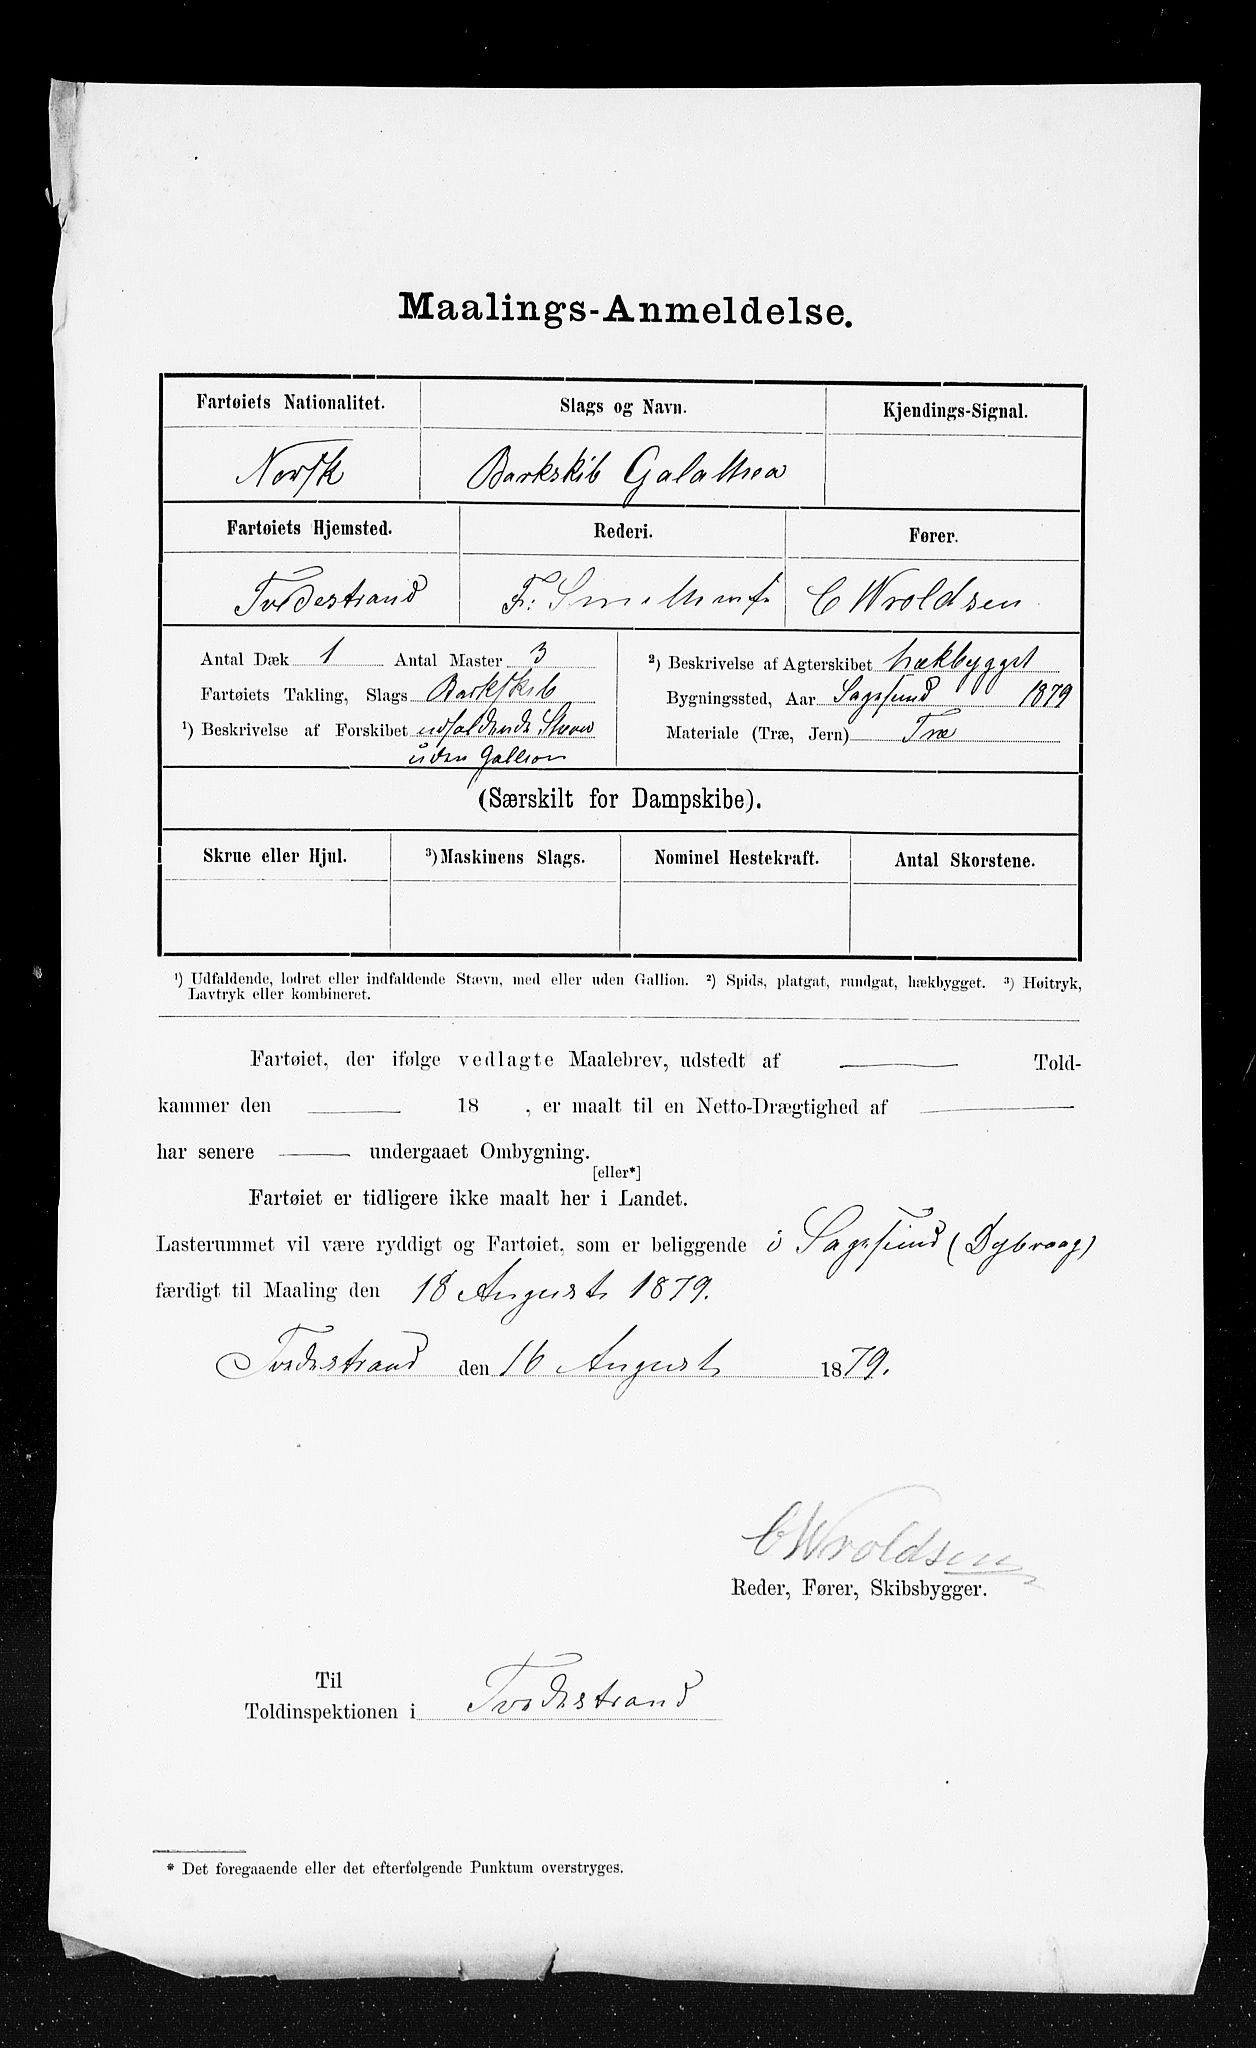 Maalings-Anmeldelse.
Fartøiets Nationalitet. Slags og Navn. Kjendings-Signal.
Norsk Barkskib Galathea
Fartøiets Hjemsted. Rederi. Fører.
Tvedestrand Fr: Smith C Wroldsen
Antal Dæk 1 Antal Master 3
Fartøiets Takling, Slags Barkskib
¹) Beskrivelse af Forskibet udfaldende Stævn
uden Gallion
²) Beskrivelse af Agterskibet hækbygget
Bygningssted, Aar Sagesund 1879
Materiale (Træ, Jern) Træ
(Særskilt for Dampskibe).
Skrue eller Hjul. ³) Maskinens Slags. Nominel Hestekraft. Antal Skorstene.
¹) Udfaldende, lodret eller indfaldende Stævn, med eller uden Gallion. ²) Spids, platgat, rundgat, hækbygget. ³) Høitryk,
Lavtryk eller kombineret.
Fartøiet, der ifølge vedlagte Maalebrev, udstedt af Told-
kammer den 18 , er maalt til en Netto-Drægtighed af
har senere undergaaet Ombygning.
[eller*]
Fartøiet er tidligere ikke maalt her i Landet.
Lasterummet vil være ryddigt og Fartøiet, som er beliggende i Sagesund (Dybvaag)
færdigt til Maaling den 18 August 1879.
Tvedestrand den 16 August 1879.
C Wroldsen
Reder, Fører, Skibsbygger.
Til
Toldinspektionen i Tvedestrand
* Det foregaaende eller det efterfølgende Punktum overstryges.